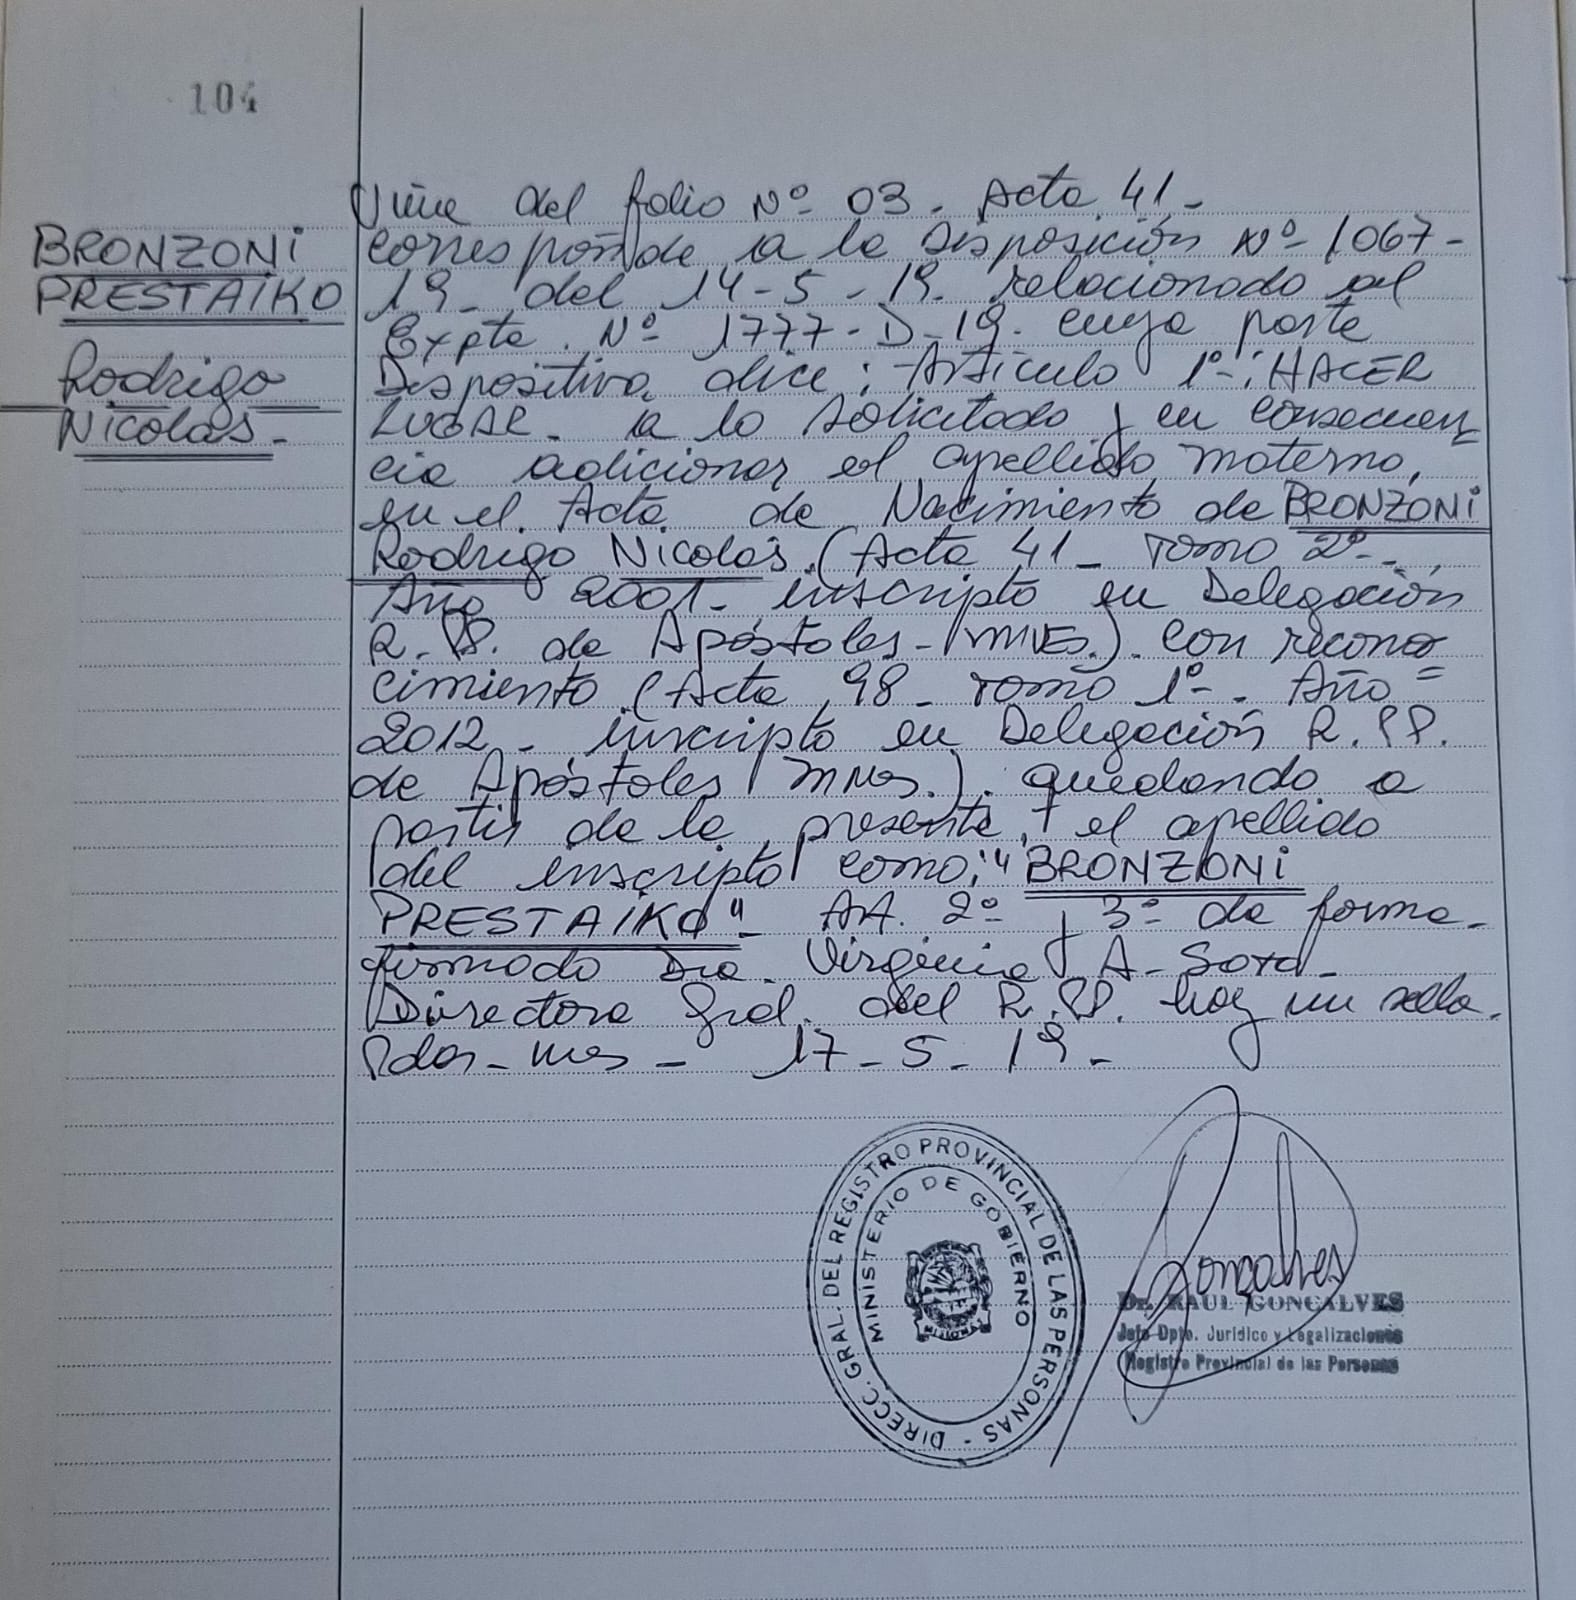 104
BRONZONI
PRESTAIKO
Rodrigo
Nicolás.-
Viene del folio Nº 03. Acta 41-
corresponde a la Disposición Nº 1067-
19- del 14-5-19. relacionado al
Expte. Nº 1777-D-19. cuya parte
Dispositiva dice: Artículo 1º: HACER
LUGAR- a lo solicitado y en consecuen
cia adicionar el apellido materno,
en el Acta de Nacimiento de BRONZONI
Rodrigo Nicolás (Acta 41- Tomo 2º-
Año 2001- inscripto en Delegación
R.P.P. de Apóstoles-(MNES.). con recono
cimiento (Acta 98 Tomo 1º-. Año =
2012- inscripto en Delegación R.PP.
de Apóstoles (MNES.). quedando a
partir de la presente, el apellido
del inscripto como: "BRONZONI
PRESTAIKO"- Art. 2º y 3º de forma.
firmado Dra. Virginia A-
Directora Gral. del R.PP. hoy
Pdas-Mnes- 17-5-19-
DIRECC. GRAL. DEL REGISTRO PROVINCIAL DE LAS PERSONAS -
MINISTERIO DE GOBIERNO
Gonçalves
Dr. RAUL GONCALVES
Jefe Dpto. Jurídico y Legalizaciones
Registro Provincial de las Personas